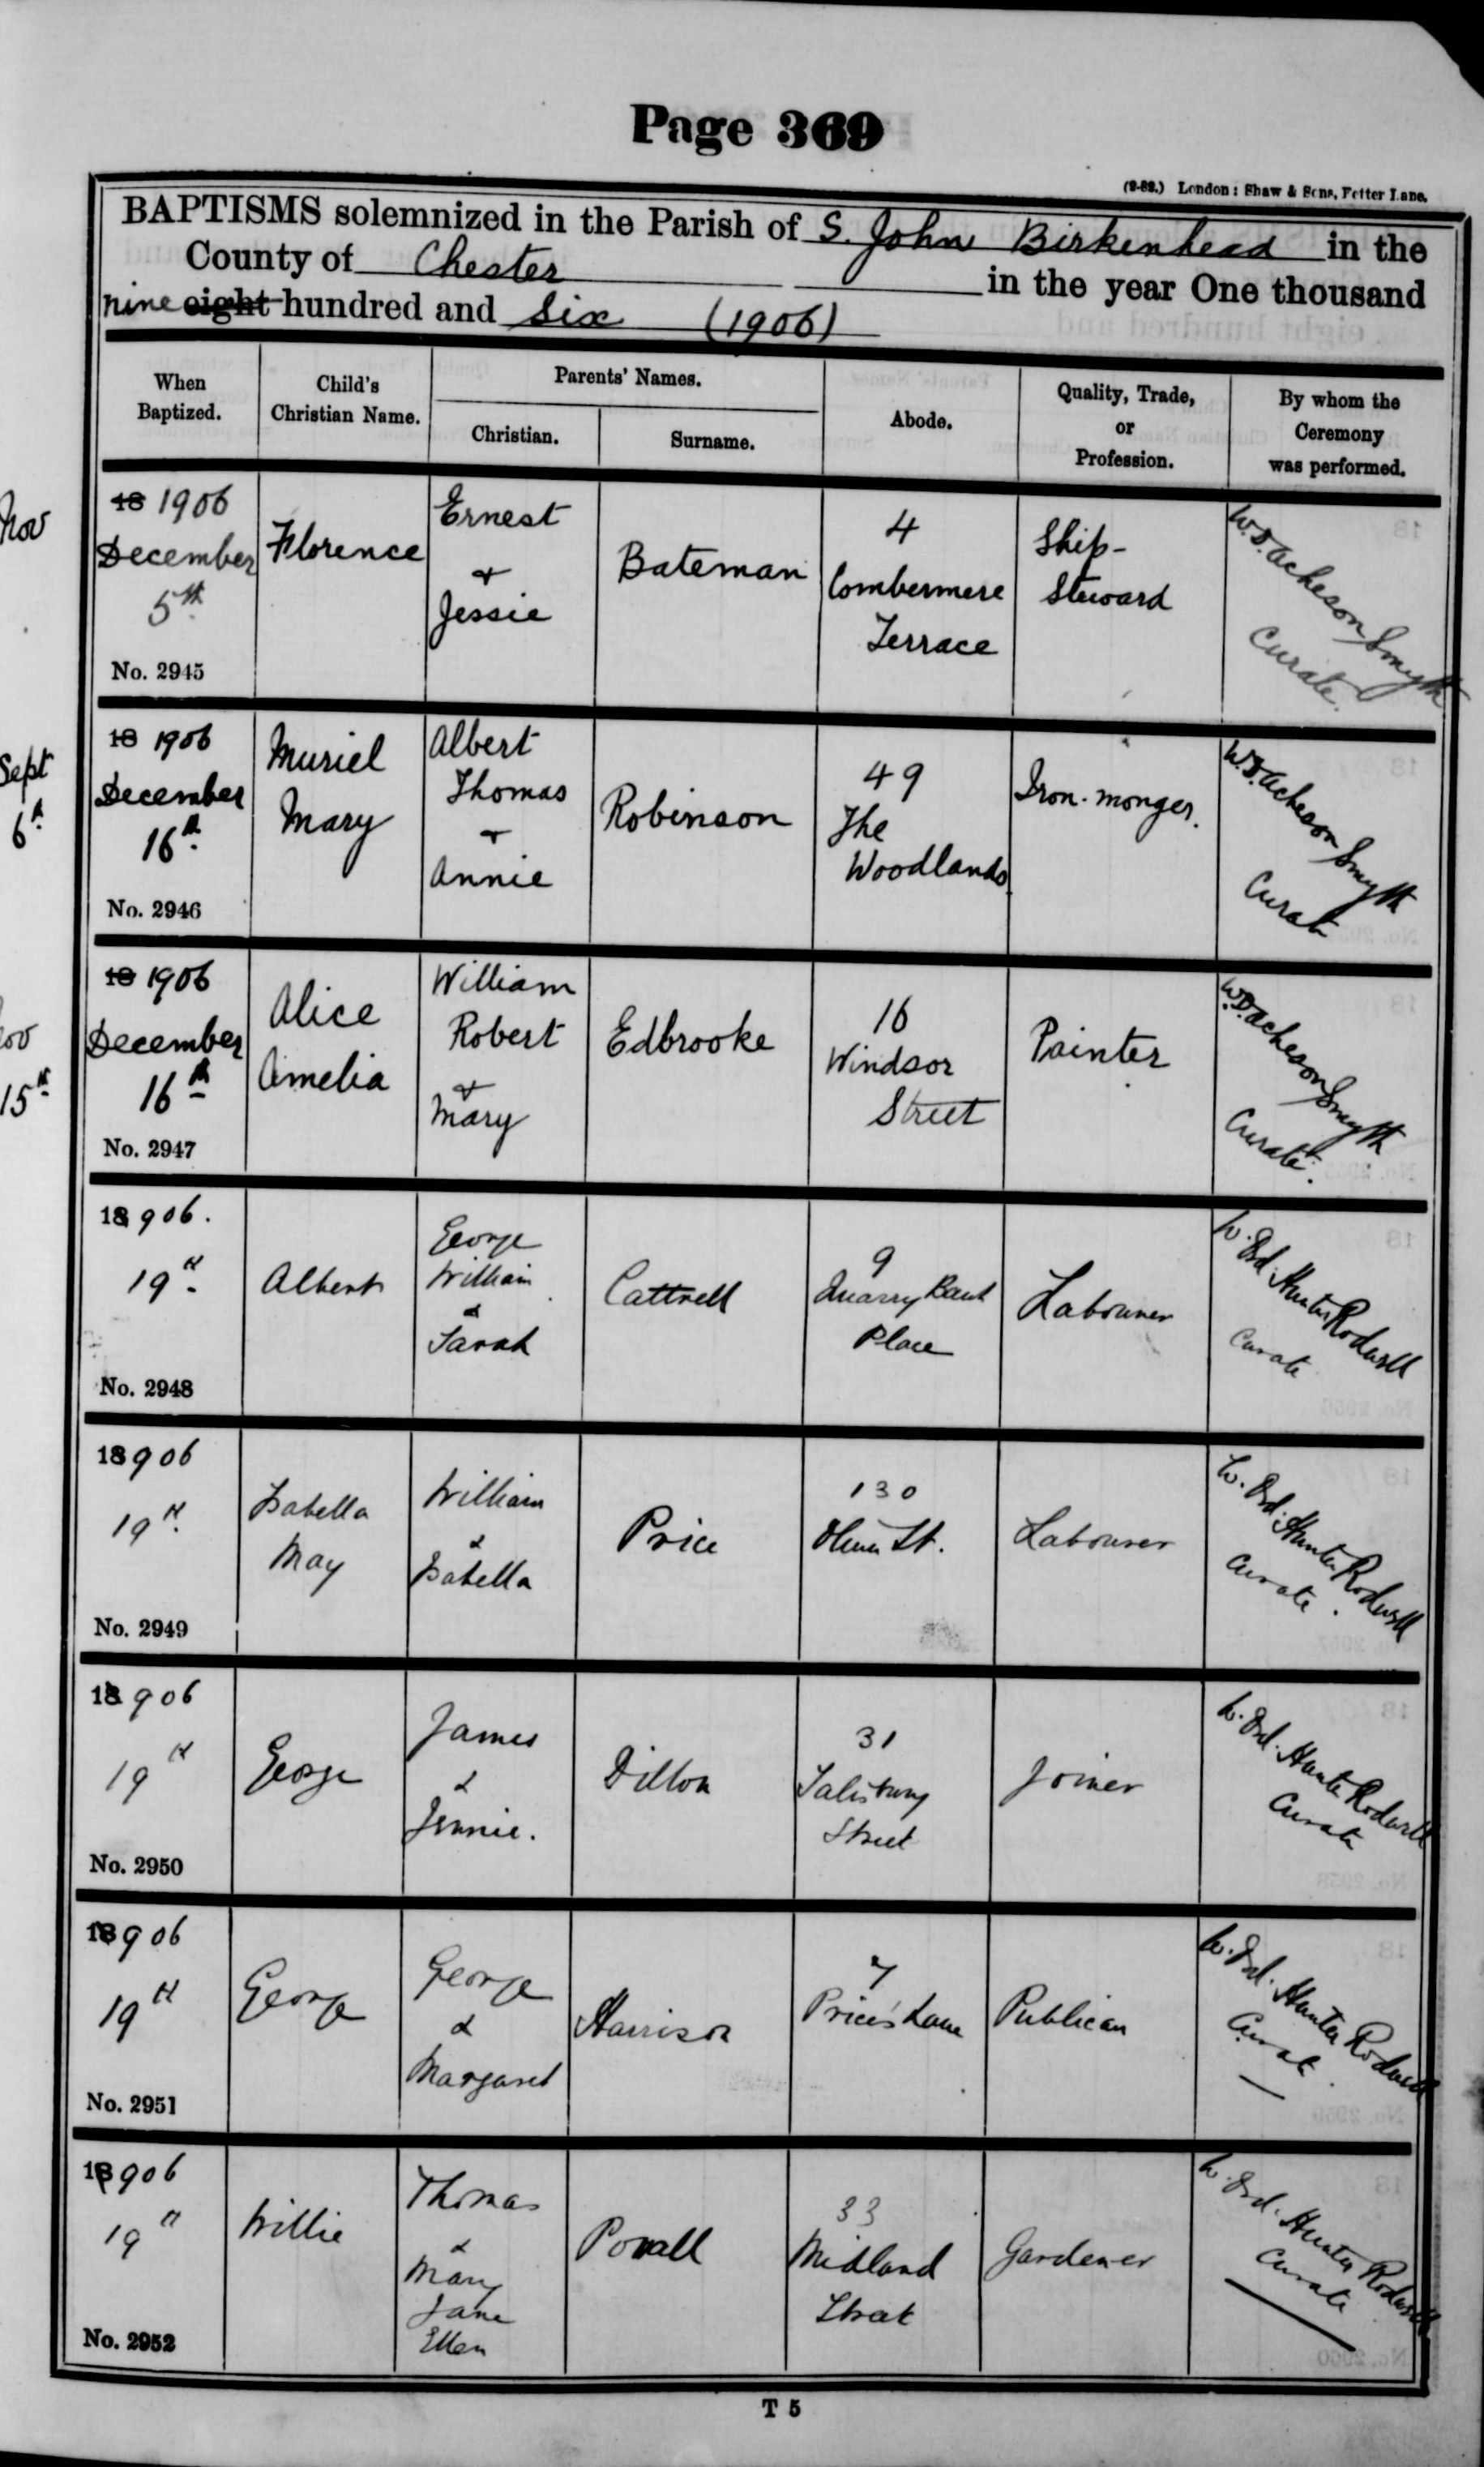 Page 369
(9-89.) London: Shaw & Sons, Fetter Lane.
BAPTISMS solemnized in the Parish of S. John Birkenhead in the
County of Chester in the year One thousand
nine eight hundred and Six (1906)
When Baptized.
Child's Christian Name.
Parents' Names.
Christian.
Surname.
Abode.
Quality, Trade, or Profession.
By whom the Ceremony was performed.
Nov
18 1906
December
5th
No. 2945
Florence
Ernest
+
Jessie
Bateman
4
Combermere
Terrace
Ship-
Steward
Acheson Smyth
Curate.
Sept
6th
18 1906
December
16th
No. 2946
Muriel
Mary
Albert
Thomas
+
Annie
Robinson
49
The
Woodlands
Iron-monger.
Acheson Smyth
Curate
15th
18 1906
December
16th
No. 2947
Alice
Amelia
William
Robert
+
Mary
Edbrooke
16
Windsor
Street
Painter
Acheson Smyth
Curate.
1906.
19th
No. 2948
Albert
George
William
&
Sarah
Cattrell
9
Quarry Bank
Place
Labourer
Hunter Rodwell
Curate
1906
19th
No. 2949
Isabella
May
William
&
Isabella
Price
130
Oliver St.
Labourer
Hunter Rodwell
Curate.
1906
19th
No. 2950
George
James
&
Jennie.
Dillon
31
Salisbury
Street
Joiner
Hunter Rodwell
Curate
1906
19th
No. 2951
George
George
&
Margaret
Harrison
7
Price's Lane
Publican
Hunter Rodwell
Curate.
1906
19th
No. 2952
Willie
Thomas
&
Mary
Jane
Ellen
Povall
33
Midland
Street
Gardener
Hunter Rodwell
Curate
T 5